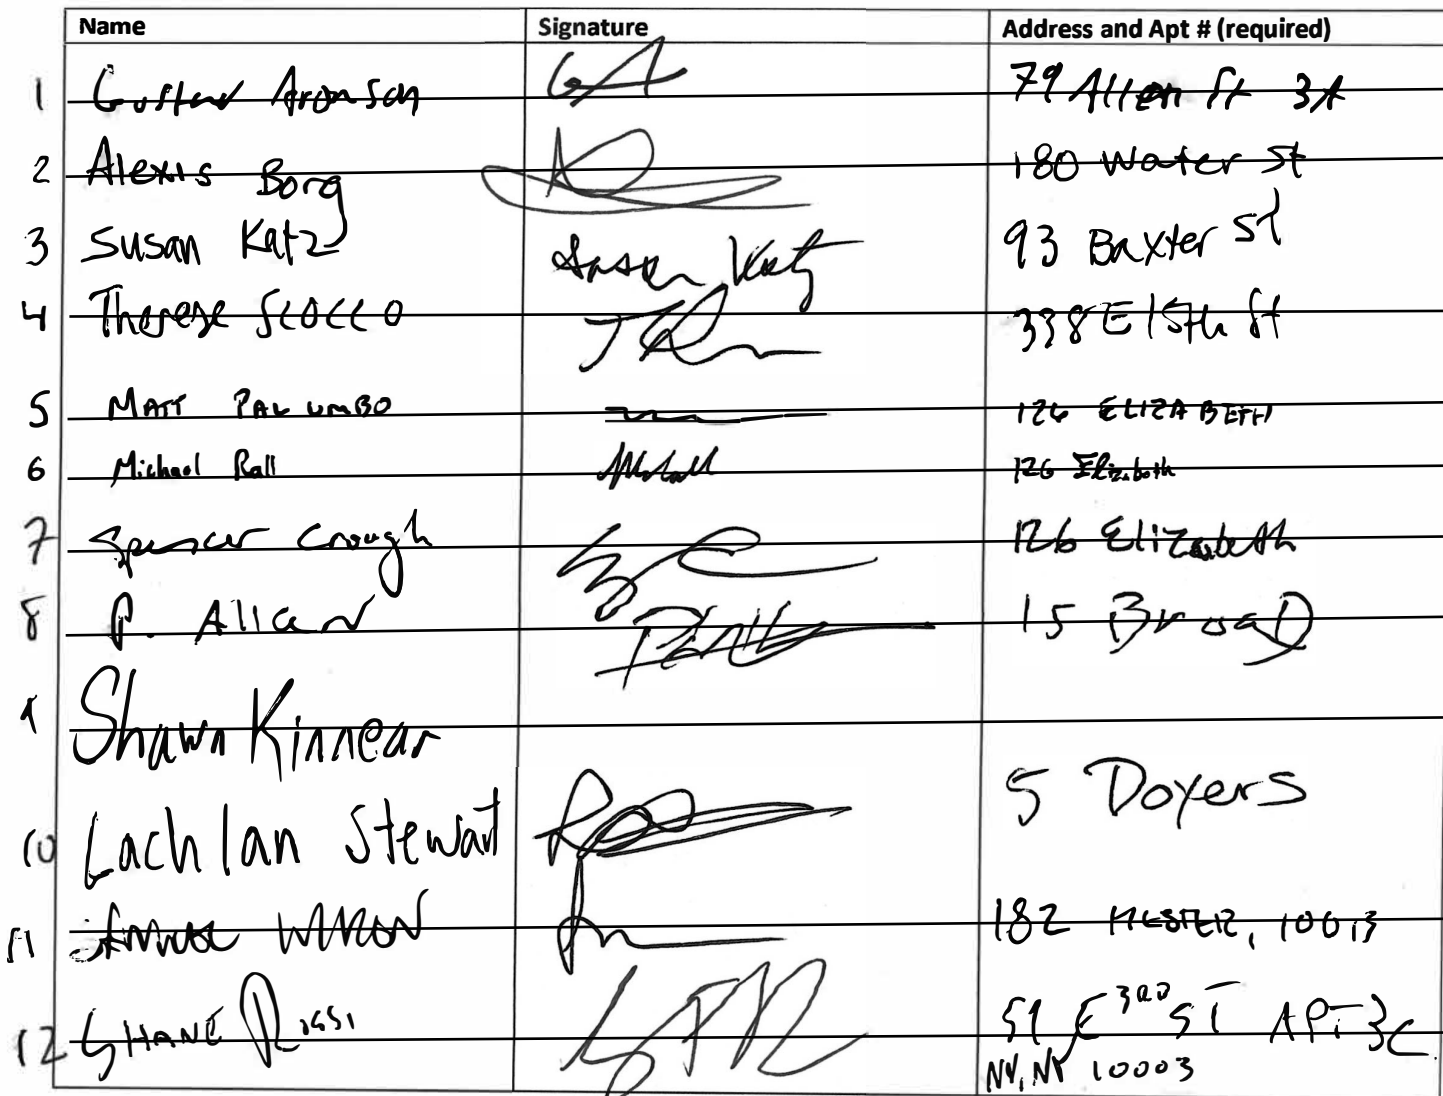 Name Signature Address and Apt # (required)
1 Gustav Aronson GA 79 Allen St 3A
2 Alexis Borg 180 Water St
3 Susan Katz Susan Katz 93 Baxter St
4 Therese Scocco 338 E 15th St
5 MATT PALUMBO 126 ELIZABETH
6 Michael Rall 126 Elizabeth
7 Spencer Crough 126 Elizabeth
8 P. Allan 15 Broad
9 Shawn Kinnear
10 Lachlan Stewart 5 Doyers
11 182 HESTER, 10013
12 SHANE ROSSI 51 E 3RD ST APT 3C
NY, NY 10003